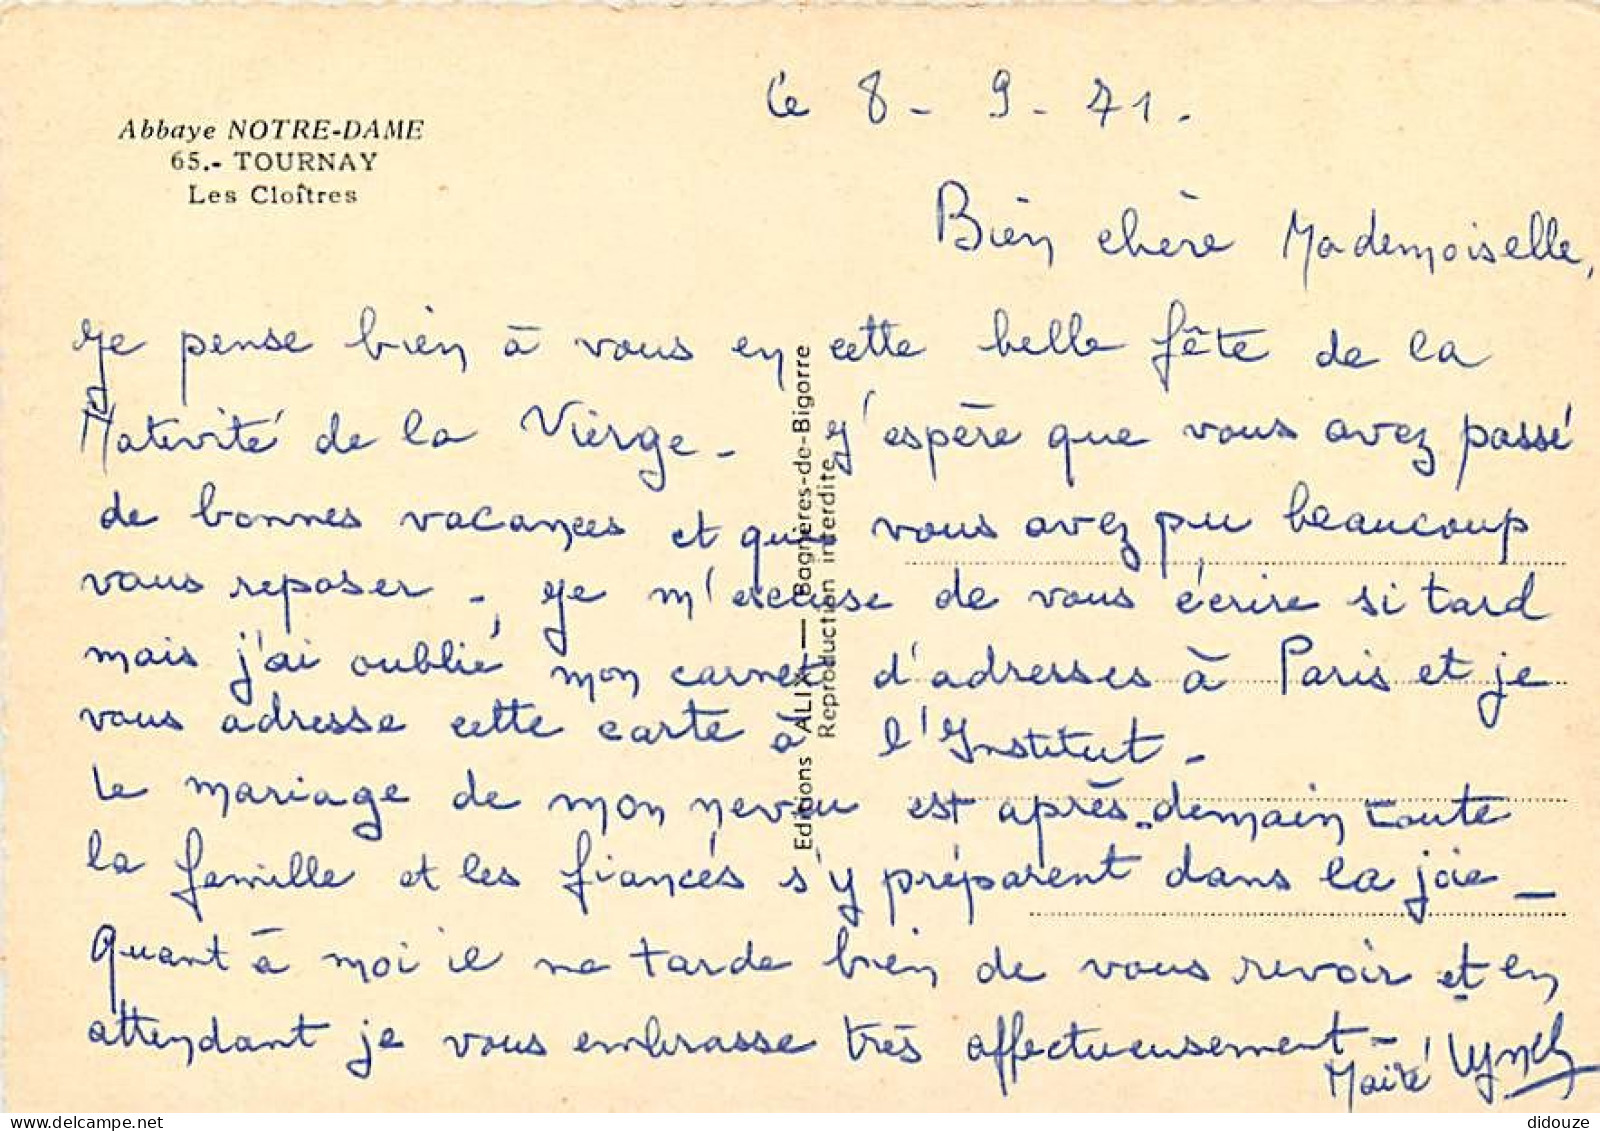 Abbaye NOTRE-DAME
65.- TOURNAY
Les Cloîtres
le 8-9-71.
Bien chère Mademoiselle,
Je pense bien à vous en cette belle fête de la
Nativité de la Vierge - J'espère que vous avez passé
de bonnes vacances et que vous avez pu beaucoup
vous reposer -, Je m'excuse de vous écrire si tard
mais j'ai oublié mon carnet d'adresses à Paris et je
vous adresse cette carte à l'Institut -
Le mariage de mon neveu est après-demain toute
la famille et les fiancés s'y préparent dans la joie -
Quant à moi il me tarde bien de vous revoir et en
attendant je vous embrasse très affectueusement -
Maïté Lynch
Editions ALIX — Bagnères-de-Bigorre
Reproduction interdite
didouze